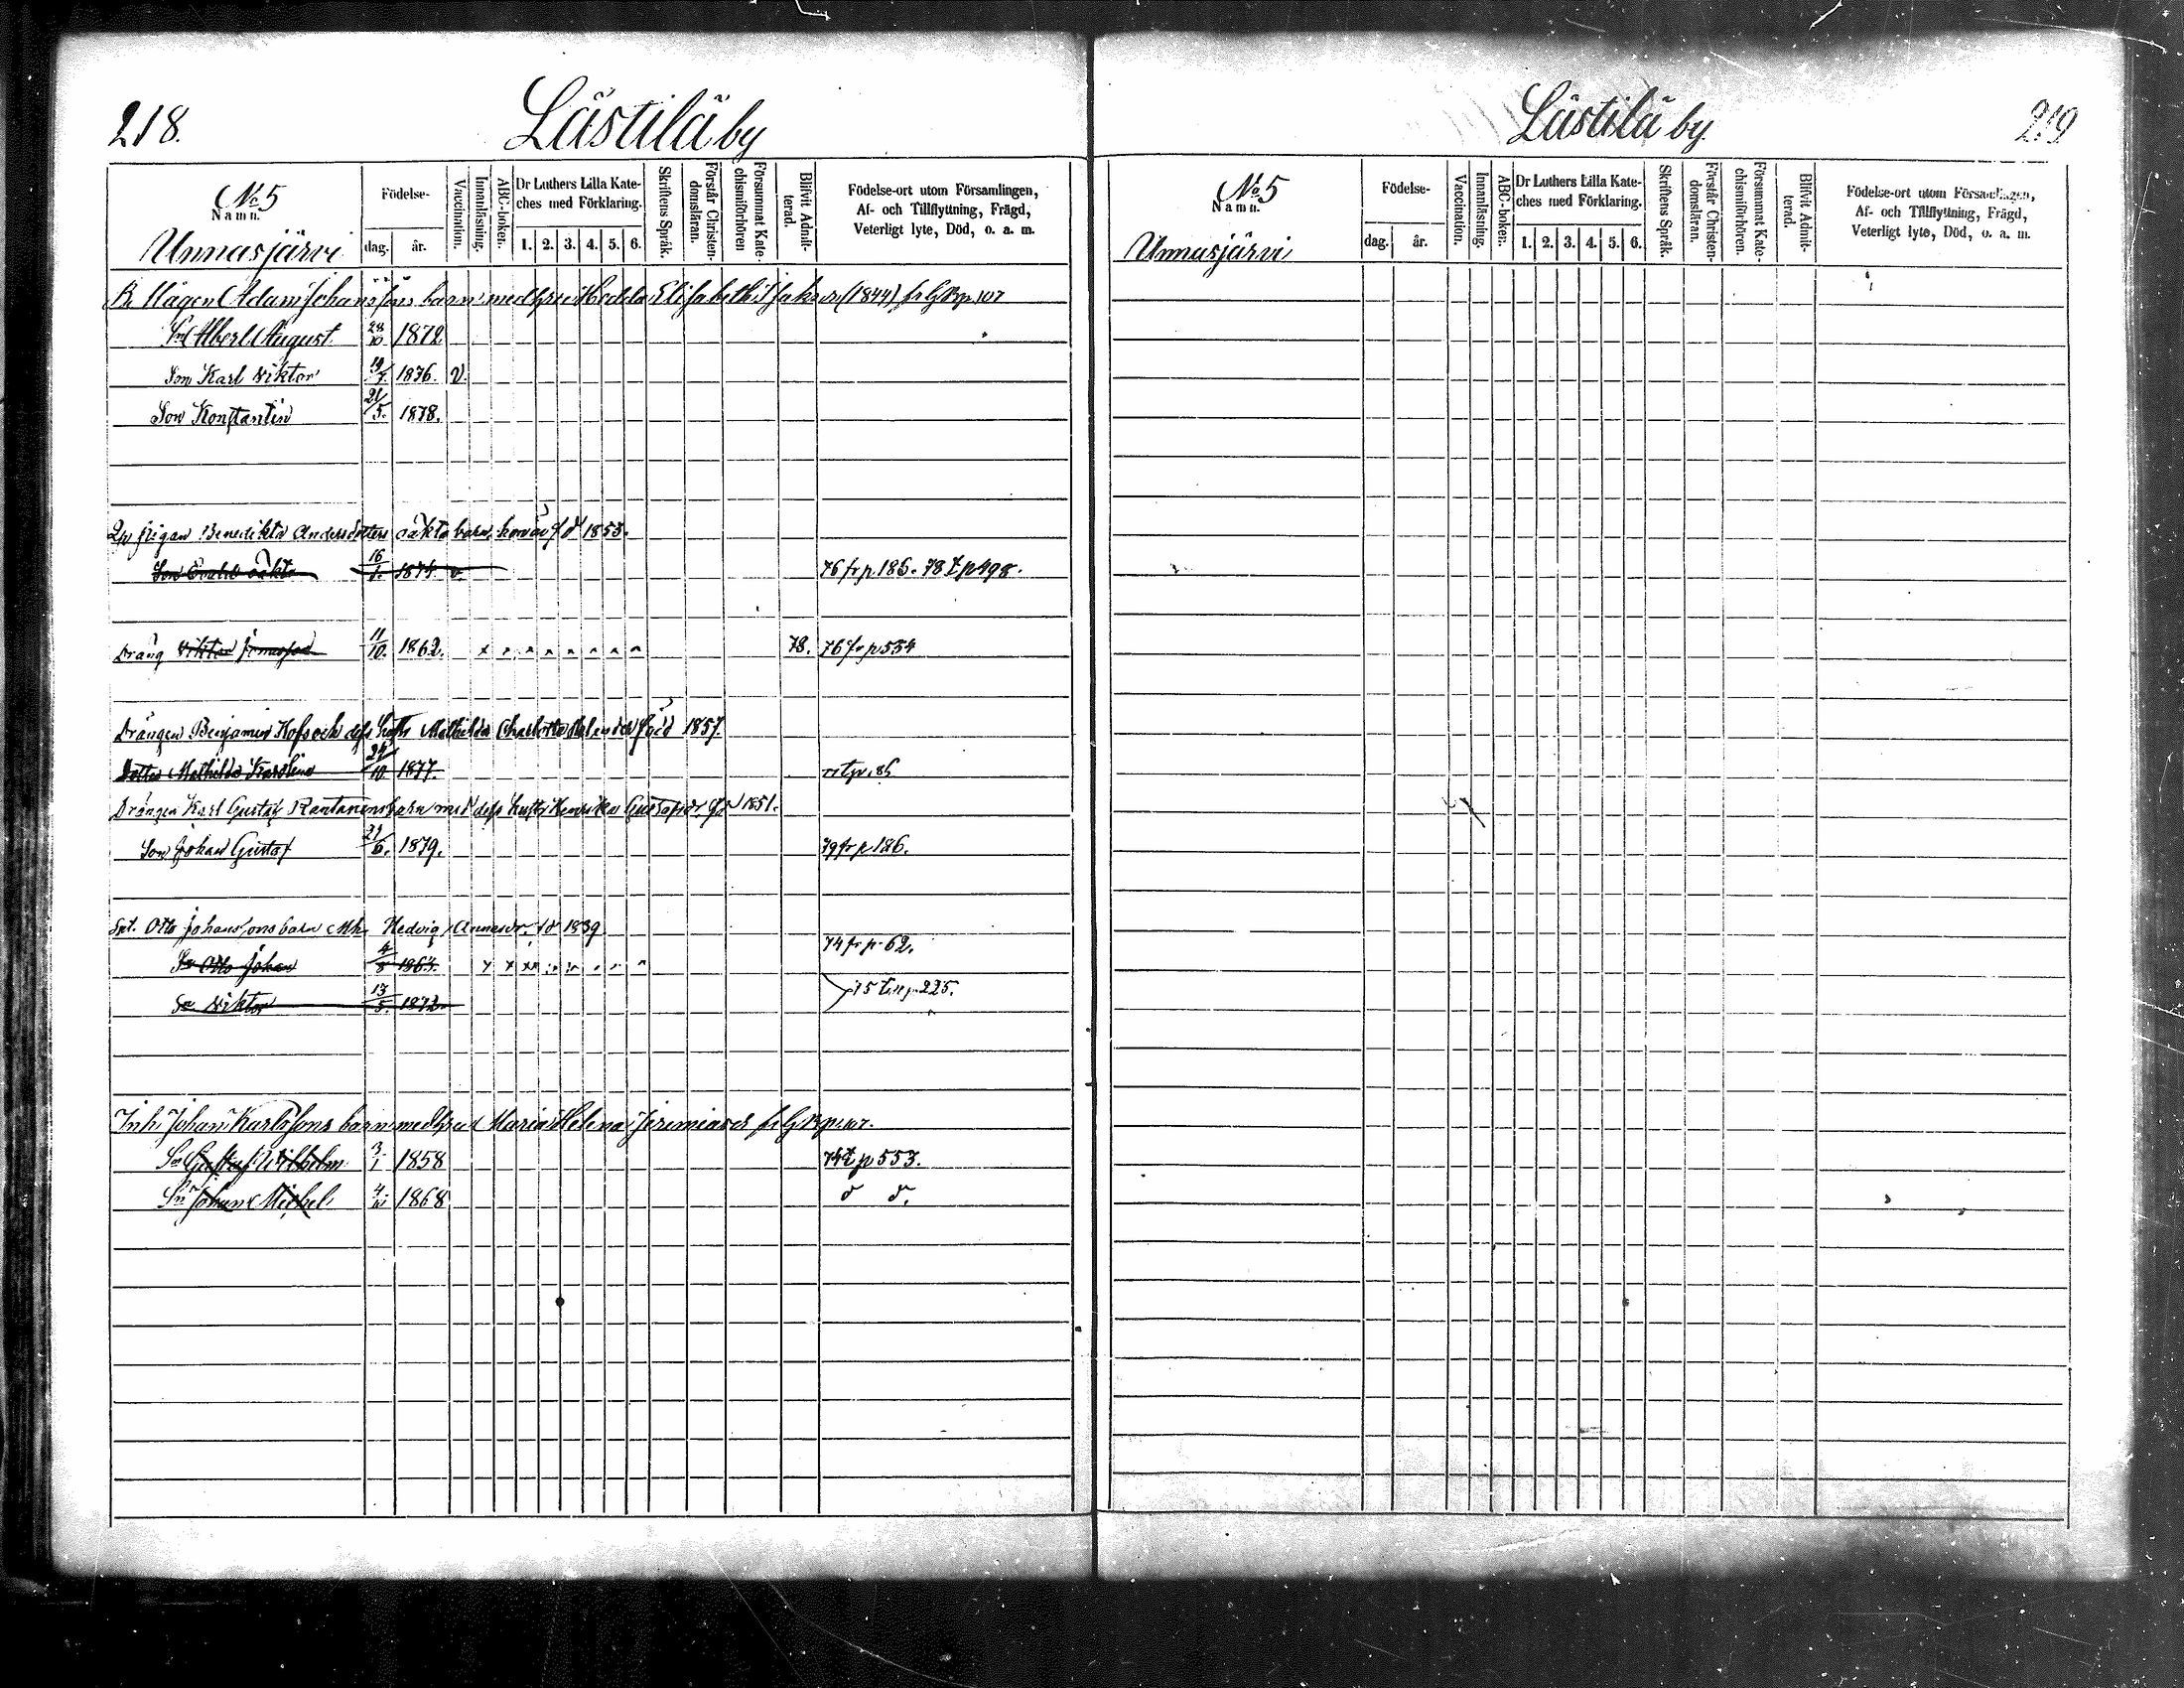 218.
Lästilä by
No 5
Namn.
Unnasjärvi
Födelse-
dag. år.
Vaccination.
Innanläsning.
ABC-boken.
Dr Luthers Lilla Kate-
ches med Förklaring.
1. 2. 3. 4. 5. 6.
Skriftens Språk.
Förstår Christen-
domsläran.
Försummat Kate-
chismiförhören
Blifvit Admit-
terad.
Födelse-ort utom Församlingen,
Af- och Tillflyttning, Frägd,
Veterligt lyte, Död, o. a. m.
Adam Johanssons barn med Hedda Elisabeth (1844) p 107
Sn Albert August 28/10 1872
Son Karl Viktor 1876. v.
Son Konstantin 21/5. 1878.
Benedikta Andersdotters oäkta barn, 1853.
Son Evald oäkta 16/1. 1874. v. 76 fr p 186. 78 t p 498.
Dräng Viktor 11/10. 1862. 78. 76 fr p 554
Drängen Benjamin och dess Mathilda Charlotta född 1857.
Dotter Mathilda Karolina 24/10 1877.
Drängen Karl Gustaf Rantanens barn med dess hustru Henrika 1851.
Son Johan Gustaf 6. 1879. 79 fr p 186.
Otto Johanssons barn Hedvig 1839
Sn Otto Johan 4/8 74 fr p 62.
Sn Viktor 13/5. 1872 75 till p 225.
Inh Johan Karlssons barn med Maria Helena Jeremiasdr
Sn Gustaf Wilhelm 3/1 1858 74 t p 553.
Sn Johan Mickel 1868 d d.
Lästilä by.
219
No 5
Namn.
Unnasjärvi
Födelse-
dag. år.
Vaccination.
Innanläsning.
ABC-boken.
Dr Luthers Lilla Kate-
ches med Förklaring.
1. 2. 3. 4. 5. 6.
Skriftens Språk.
Förstår Christen-
domsläran.
Försummat Kate-
chismiförhören.
Blifvit Admit-
terad.
Födelse-ort utom Församlingen,
Af- och Tillflyttning, Frägd,
Veterligt lyte, Död, o. a. m.